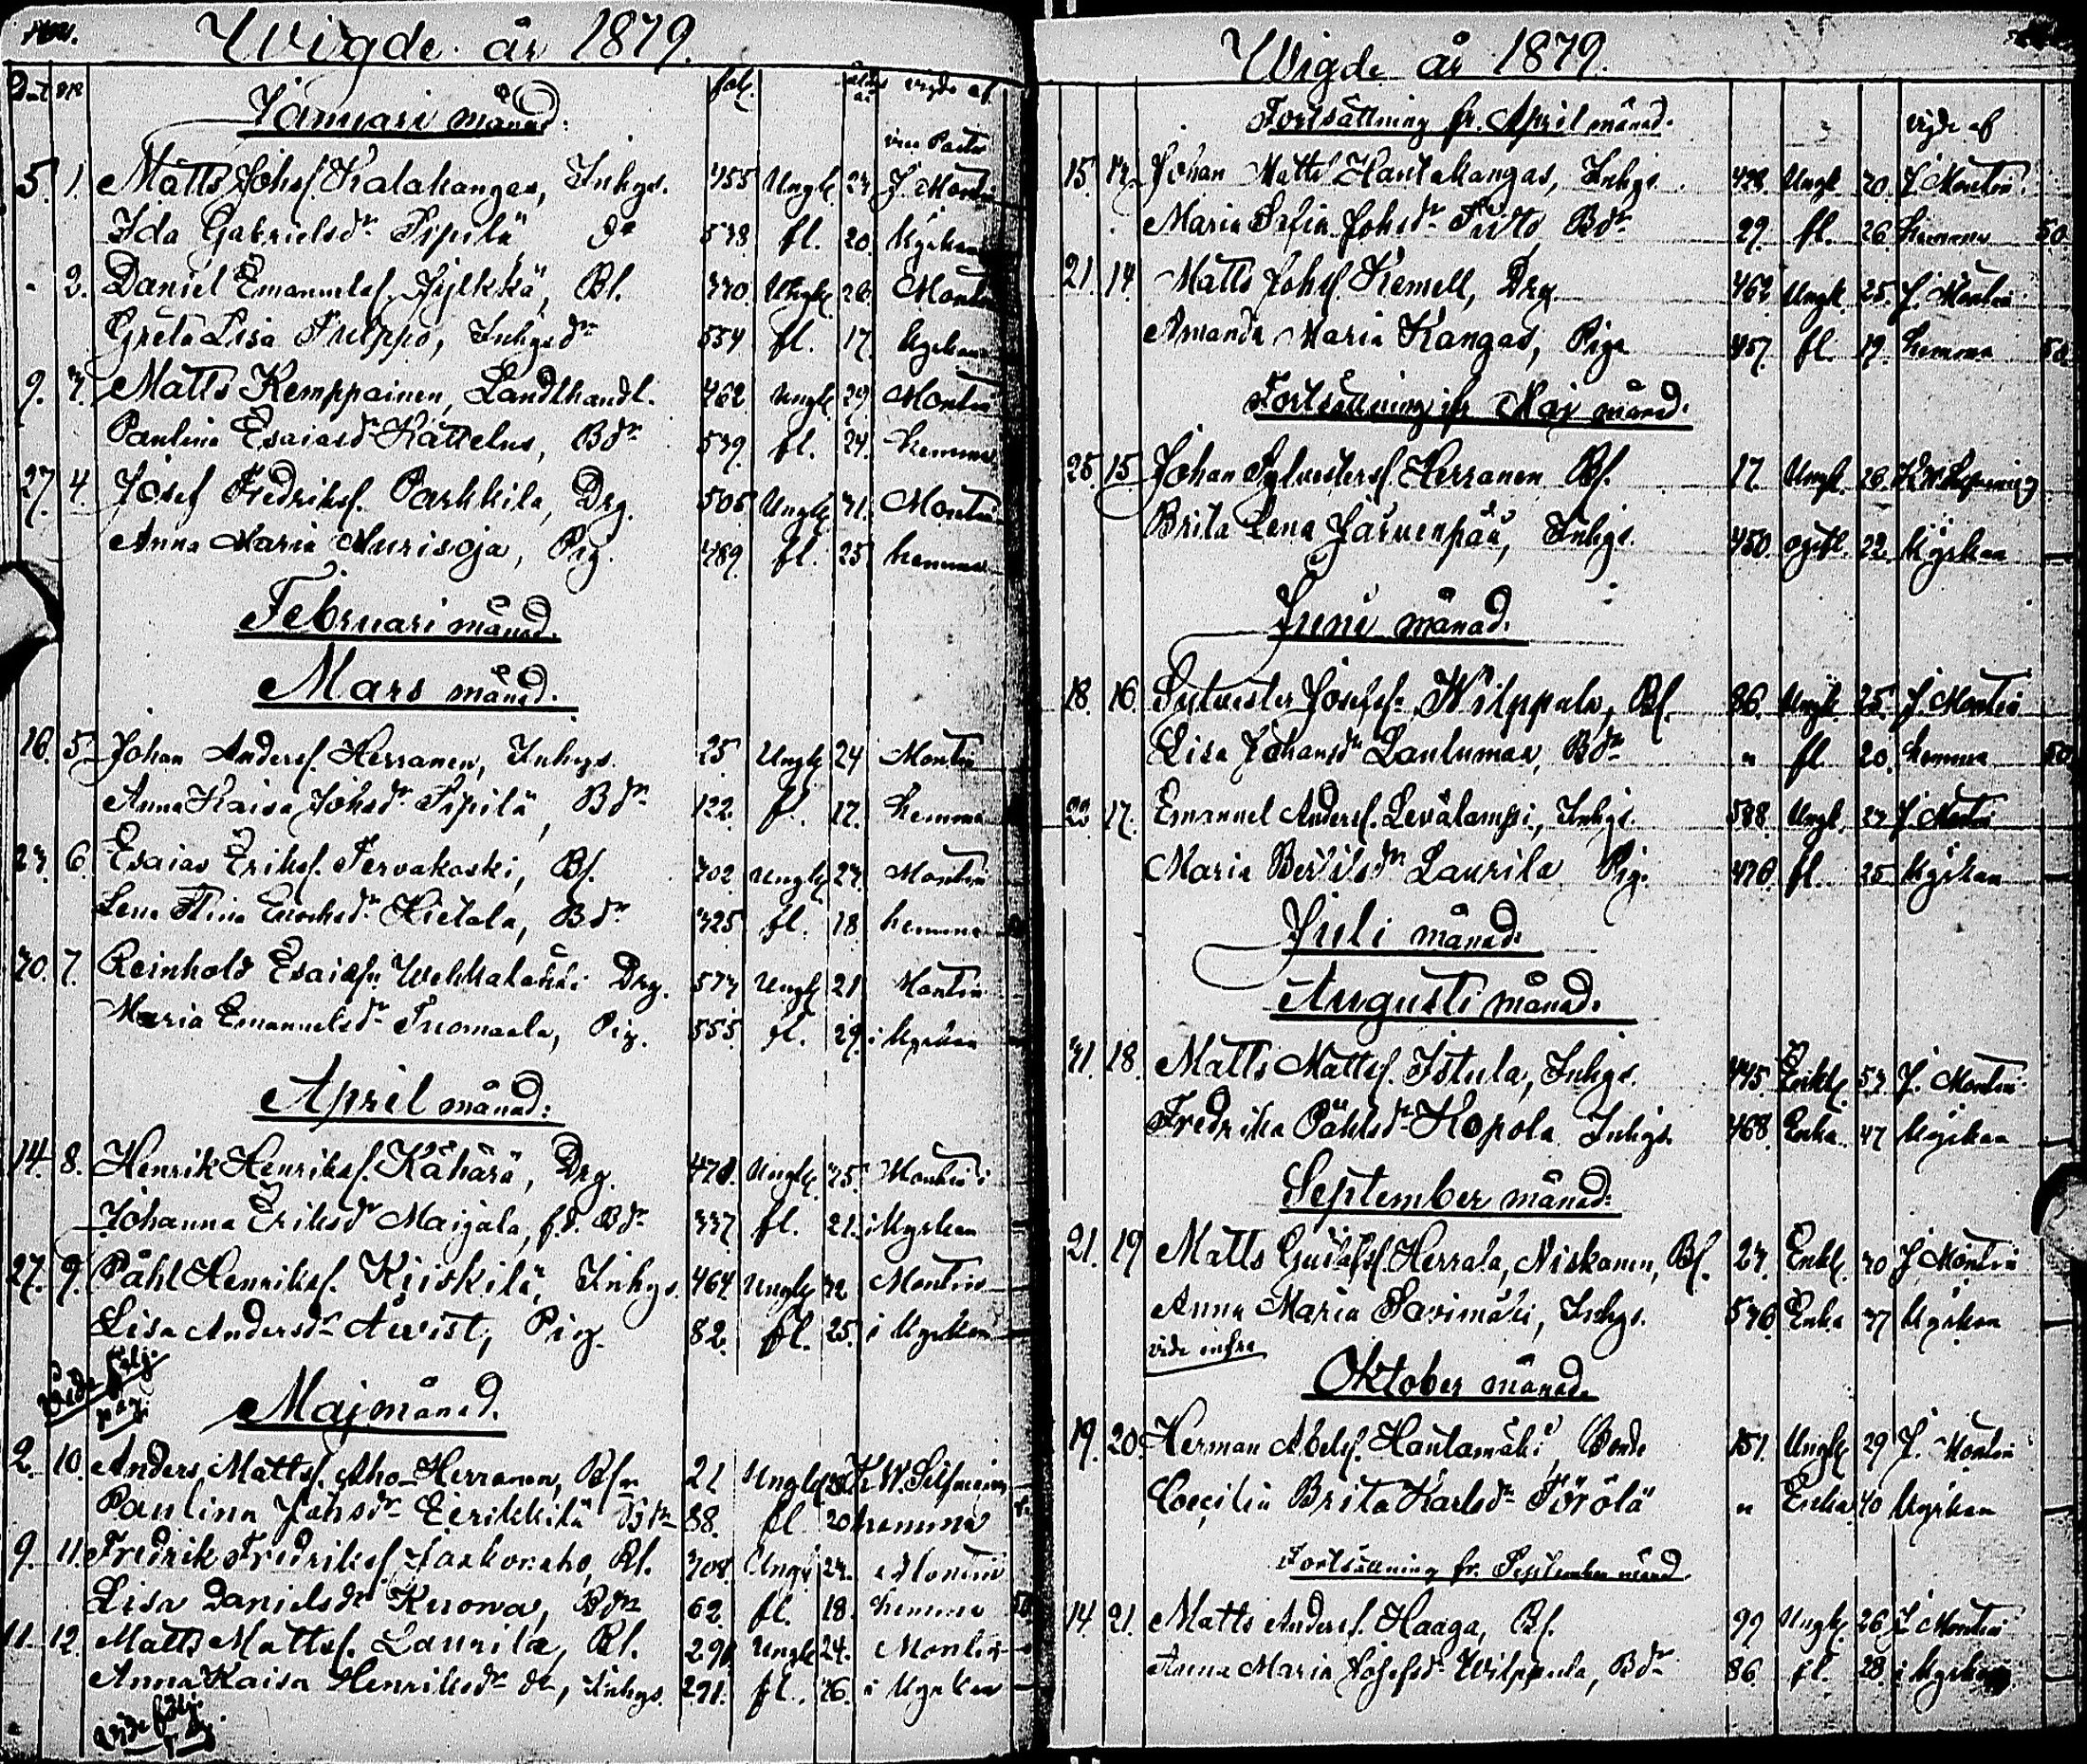 Wigde år 1879.
Dat N:o fol. ålder år vigde af
Januari månad. vice Pastor
5. 1. Matts Johsf. Kalakangas, Inhys. 455 Ungk. 23 J. Montin
Ida Gabrielsdr Pipilä do 538 fl. 20. Kyrkan
" 2. Daniel Emanuelsf. Jylkkä, Bf. 330 Ungk 26. Montin
Greta Lisa Filppo, Inhysdr 554 fl. 17. Kyrkan
9. 3. Matts Kemppainen, Landthandl. 462 Ungk 29 Montin
Paulina Esaiasdr Kattelus, Bdr 539. fl. 24. hemma
27. 4. Josef Fredriksf. Parkkila, Drg. 505 Ungk 31. Montin
Anna Maria Murisoja, Pig. 489. fl. 25 hemma
Februari månad.
Mars månad.
16. 5. Johan Andersf. Herranen, Inhys. 25 Ungk 24 Montin
Anna Kaisa Johsdr Pipilä, Bdr 122. fl. 17. hemma
23. 6. Esaias Eriksf. Tervakoski, Bf. 302 Ungk 23. Montin
Lena Stina Enochsdr Hietala, Bdr 325 fl. 18 hemma
30. 7. Reinhold Esaiasf. Wehkakoski Drg. 573 Ungk 21 Montin
Maria Emanuelsdr Tuomaala, Pig. 555. fl. 29. i Kyrkan
April månad:
14. 8. Henrik Henriksf. Kähärä, Drg. 470. Ungk. 35. Montin i
Johanna Eriksdr Maijala, f.d. Bdr 337. fl. 21. i Kyrkan
27. 9. Påhl Henriksf. Kjiskilä, Inhys. 464 Ungk 32 Montin
Lisa Andersdr Awist, Pig. 82. fl. 25. i Kyrkan
Vide följ. pag.
Maj månad.
2. 10. Anders Mattsf. Aho-Herranen, Bf. 21 Ungk K W.
Paulina Johsdr Eerikkilä Bdr 88. fl 20 hemma
9. 11. Fredrik Fredriksf. Bf. 308. Ungk 23. Montin
Lisa Danielsdr Kuona, Bdr 62. fl. 18. hemma 50
11. 12. Matts Mattsf. Laurila, Bf. 290. Ungk 24. Montin
Anna Kaisa Henriksdr do, Inhys. 291. fl. 36. i Kyrkan
vide följ. pag.
Wigde år 1879.
Fortsättning fr. April månad. vigde af
15. 13. Johan Mattsf Hautakangas, Inhys. 428. Ungk 30. J. Montin
Maria Sefia Johsdr Bdr 29. fl. 26. hemma 50
21. 14. Matts Johsf. Kemell, Drg. 462 Ungk. 25. J. Montin
Amanda Maria Kangas, Piga 457. fl. 19. hemma 50
Fortsättning fr Maj månad.
25. 15. Johan Sylvestersf. Herranen Bf. 17. Ungk. 26. K W
Brita Lena Järvenpää, Inhys. 450. ogft. 22. Kyrkan
Juni månad.
18. 16. Sylvester Josefsf. Wilppula, Bf. 86. Ungk 25. J. Montin
Lisa Johansdr Laulumaa, Bdr " fl 20. hemma 50
23. 17. Emanuel Andersf. Levälampi, Inhys. 588. Ungk. 23 J. Montin
Maria Bertilsdr Laurila Pig. 476. fl. 25 Kyrkan
Juli månad.
Augusti månad.
31. 18. Matts Mattsf. Istula, Inhys. 445 Enkl. 53. J. Montin
Fredrika Påhlsdr Kopola Inhys. 468 Enka. 47 Kyrkan
September månad.
21. 19 Matts Gustafsf. Herrala, Niskanen, Bf. 23. Enkl. 30 J. Montin
Anna Maria Savimäki, Inhys. 576. Enka 37 Kyrkan
vide infra
Oktober månad.
19. 20. Herman Abelsf. Hautamäki, Bonde 151. Ungk 29 J. Montin
Coecilia Brita Karlsdr Törölä " Enka 40 Kyrkan
Fortsättning fr. September månad.
14. 21. Matts Andersf. Haaga, Bf. 99 Ungk. 26 J. Montin
Anna Maria Josefsdr Wilppula, Bdr 86. fl. 28. i Kyrkan